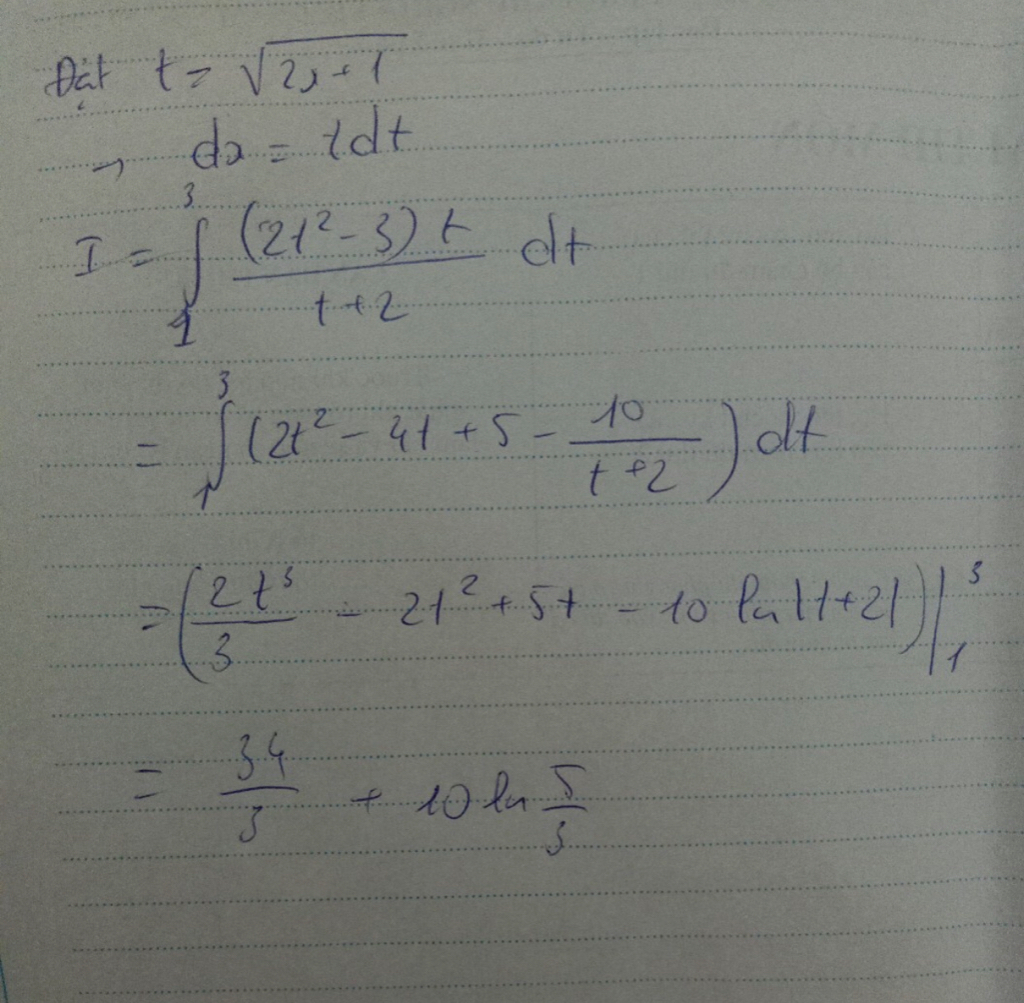 Đặt t = √(2x+1)
→ dx = tdt
I = ∫₁³ (2t² - 3) t / (t + 2) dt
= ∫₁³ (2t² - 4t + 5 - 10 / (t + 2)) dt
= (2t³ / 3 - 2t² + 5t - 10 ln |t+2|) |₁³
= 34 / 3 + 10 ln 5 / 3